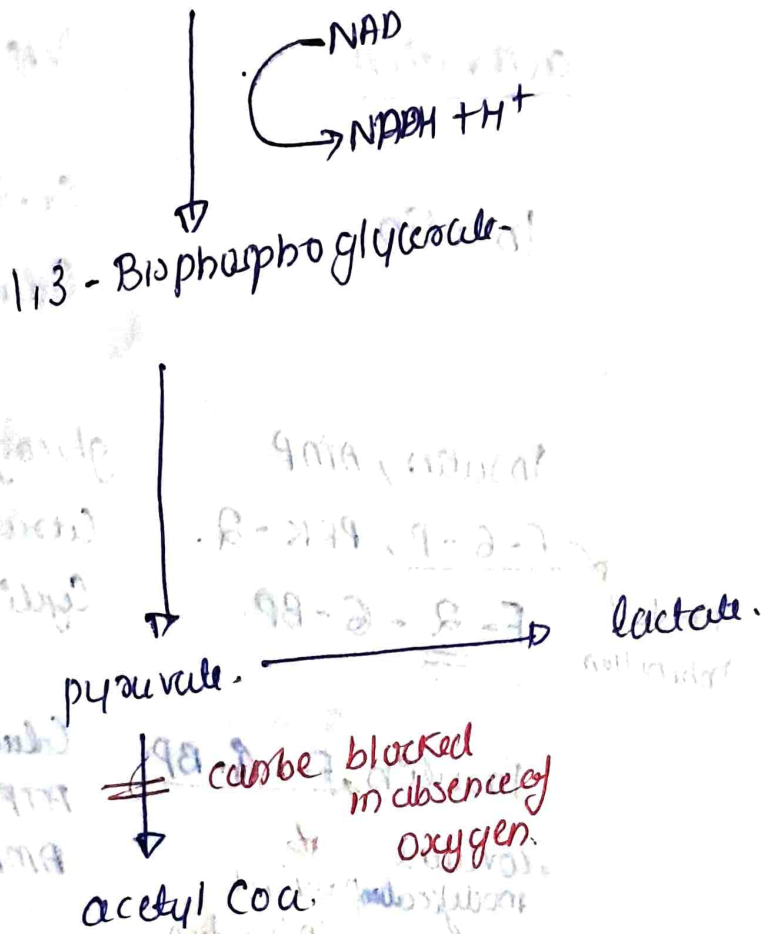 NAD
NADH + H+
1,3 - Bisphosphoglycerate
pyruvate.
lactate.
can be blocked
in absence of
oxygen.
acetyl coa.